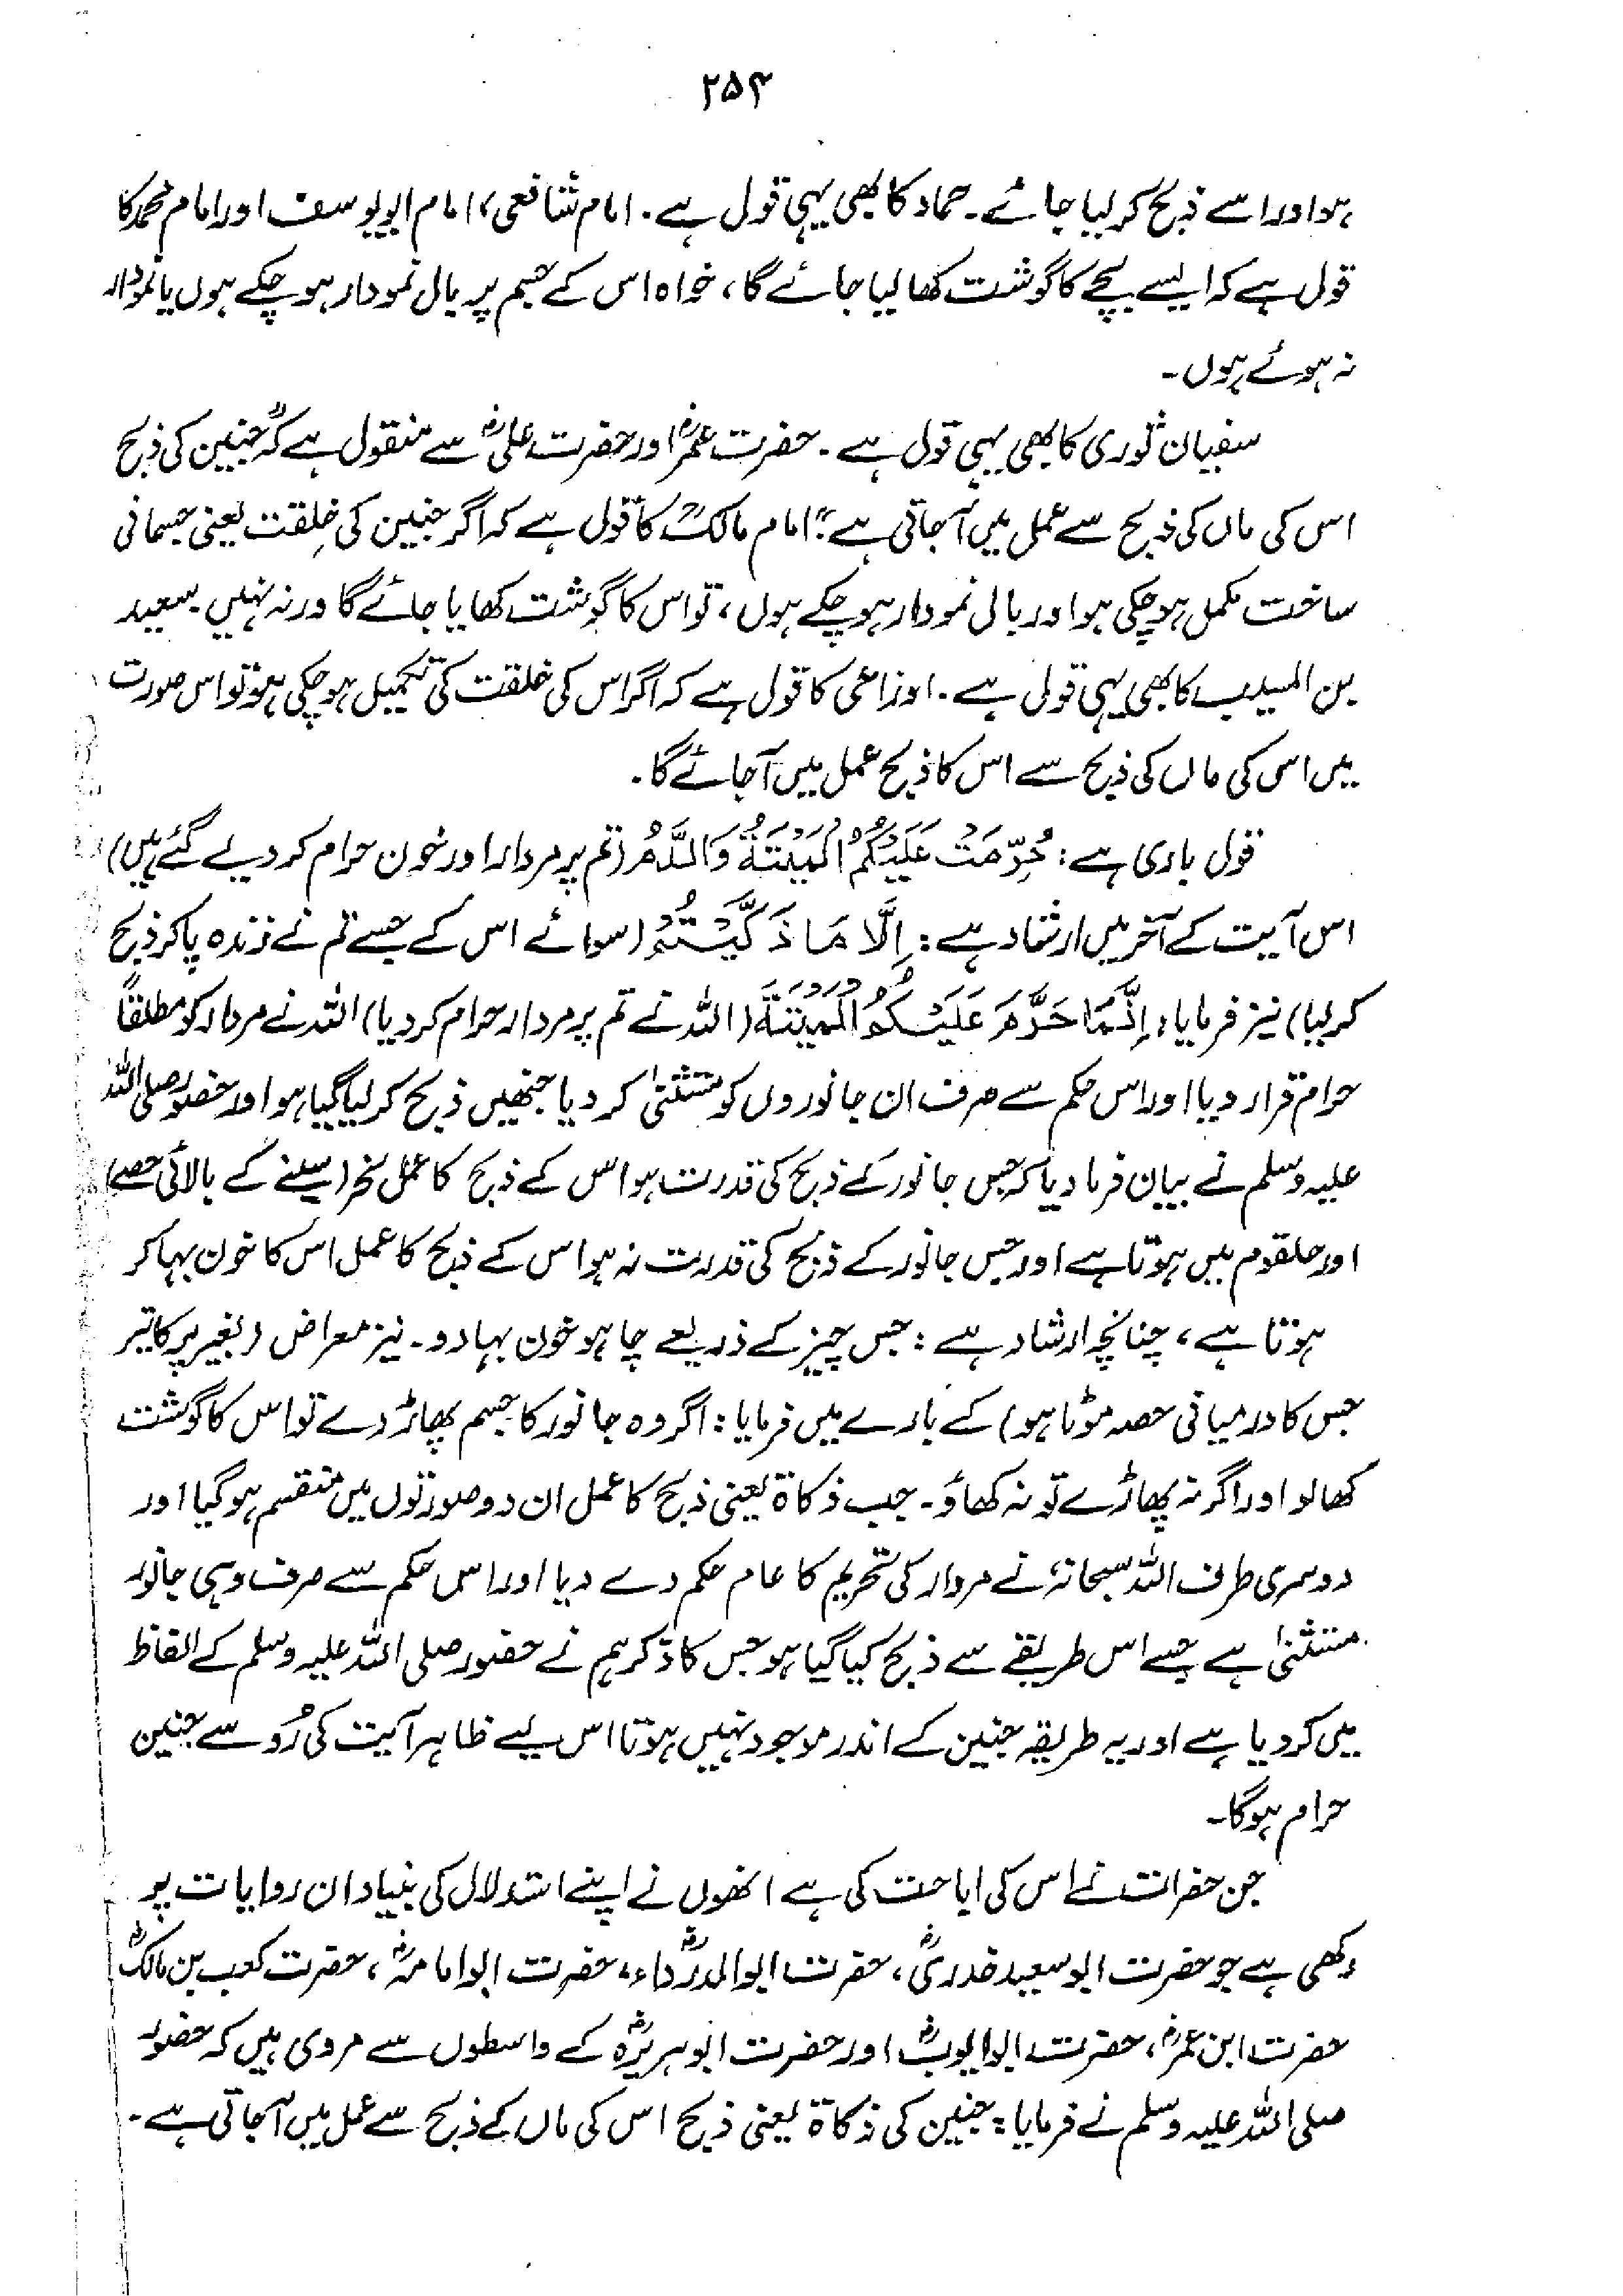 ۲۵۴
ہو اور اسے ذبح کر لیا جائے۔ حماد کا بھی یہی قول ہے۔ امام شافعی، امام ابو یوسف اور امام محمد کا
قول ہے کہ ایسے بچے کا گوشت کھا لیا جائے گا، خواہ اس کے جسم پر بال نمودار ہو چکے ہوں یا نمودار
نہ ہوئے ہوں۔
سفیان ثوری کا بھی یہی قول ہے۔ حضرت عمرؓ اور حضرت علیؓ سے منقول ہے کہ "جنین کی ذبح
اس کی ماں کی ذبح سے عمل میں آجاتی ہے"؛ امام مالکؒ کا قول ہے کہ اگر جنین کی خِلقت یعنی جسمانی
ساخت مکمل ہو چکی ہو اور بال نمودار ہو چکے ہوں، تو اس کا گوشت کھایا جائے گا ورنہ نہیں۔ سعید
بن المسیب کا بھی یہی قول ہے۔ اوزاعی کا قول ہے کہ اگر اس کی خلقت کی تکمیل ہو چکی ہو تو اس صورت
میں اس کی ماں کی ذبح سے اس کا ذبح عمل میں آجائے گا۔
قول باری ہے: حُرِّمَتْ عَلَيْكُمُ الْمَيْتَةُ وَالدَّمُ (تم پر مردار اور خون حرام کر دیے گئے ہیں)
اس آیت کے آخر میں ارشاد ہے: اِلَّا مَا ذَكَّيْتُمْ (سوائے اس کے جسے تم نے زندہ پا کر ذبح
کر لیا) نیز فرمایا: اِنَّمَا حَرَّمَ عَلَيْكُمُ الْمَيْتَةَ (اللہ نے تم پر مردار حرام کر دیا) اللہ نے مردار کو مطلقاً
حرام قرار دیا اور اس حکم سے صرف ان جانوروں کو مستثنیٰ کر دیا جنھیں ذبح کر لیا گیا ہو اور حضور صلی اللہ
علیہ وسلم نے بیان فرما دیا کہ جس جانور کے ذبح کی قدرت ہو اس کے ذبح کا عمل نحر (سینے کے بالائی حصے)
اور حلقوم میں ہوتا ہے اور جس جانور کے ذبح کی قدرت نہ ہو اس کے ذبح کا عمل اس کا خون بہا کر
ہوتا ہے، چنانچہ ارشاد ہے: جس چیز کے ذریعے چاہو خون بہا دو۔ نیز معراض (بغیر پر کا تیر
جس کا درمیانی حصہ موٹا ہو) کے بارے میں فرمایا: اگر وہ جانور کا جسم پھاڑ دے تو اس کا گوشت
کھا لو اور اگر نہ پھاڑے تو نہ کھاؤ۔ جب ذکاۃ یعنی ذبح کا عمل ان دو صورتوں میں منقسم ہو گیا اور
دوسری طرف اللہ سبحانہٗ نے مردار کی تحریم کا عام حکم دے دیا اور اس حکم سے صرف وہی جانور
مستثنیٰ ہے جسے اس طریقے سے ذبح کیا گیا ہو جس کا ذکر ہم نے حضور صلی اللہ علیہ وسلم کے الفاظ
میں کر دیا ہے اور یہ طریقہ جنین کے اندر موجود نہیں ہوتا اس لیے ظاہر آیت کی رُو سے جنین
حرام ہوگا۔
جن حضرات نے اس کی اباحت کی ہے انھوں نے اپنے استدلال کی بنیاد ان روایات پر
رکھی ہے جو حضرت ابو سعید خدریؓ، حضرت ابو الدرداءؓ، حضرت ابو امامہؓ، حضرت کعب بن مالکؓ
حضرت ابن عمرؓ، حضرت ابو ایوبؓ اور حضرت ابو ہریرہؓ کے واسطوں سے مروی ہیں کہ حضور
صلی اللہ علیہ وسلم نے فرمایا: جنین کی ذکاۃ یعنی ذبح اس کی ماں کے ذبح سے عمل میں آجاتی ہے۔